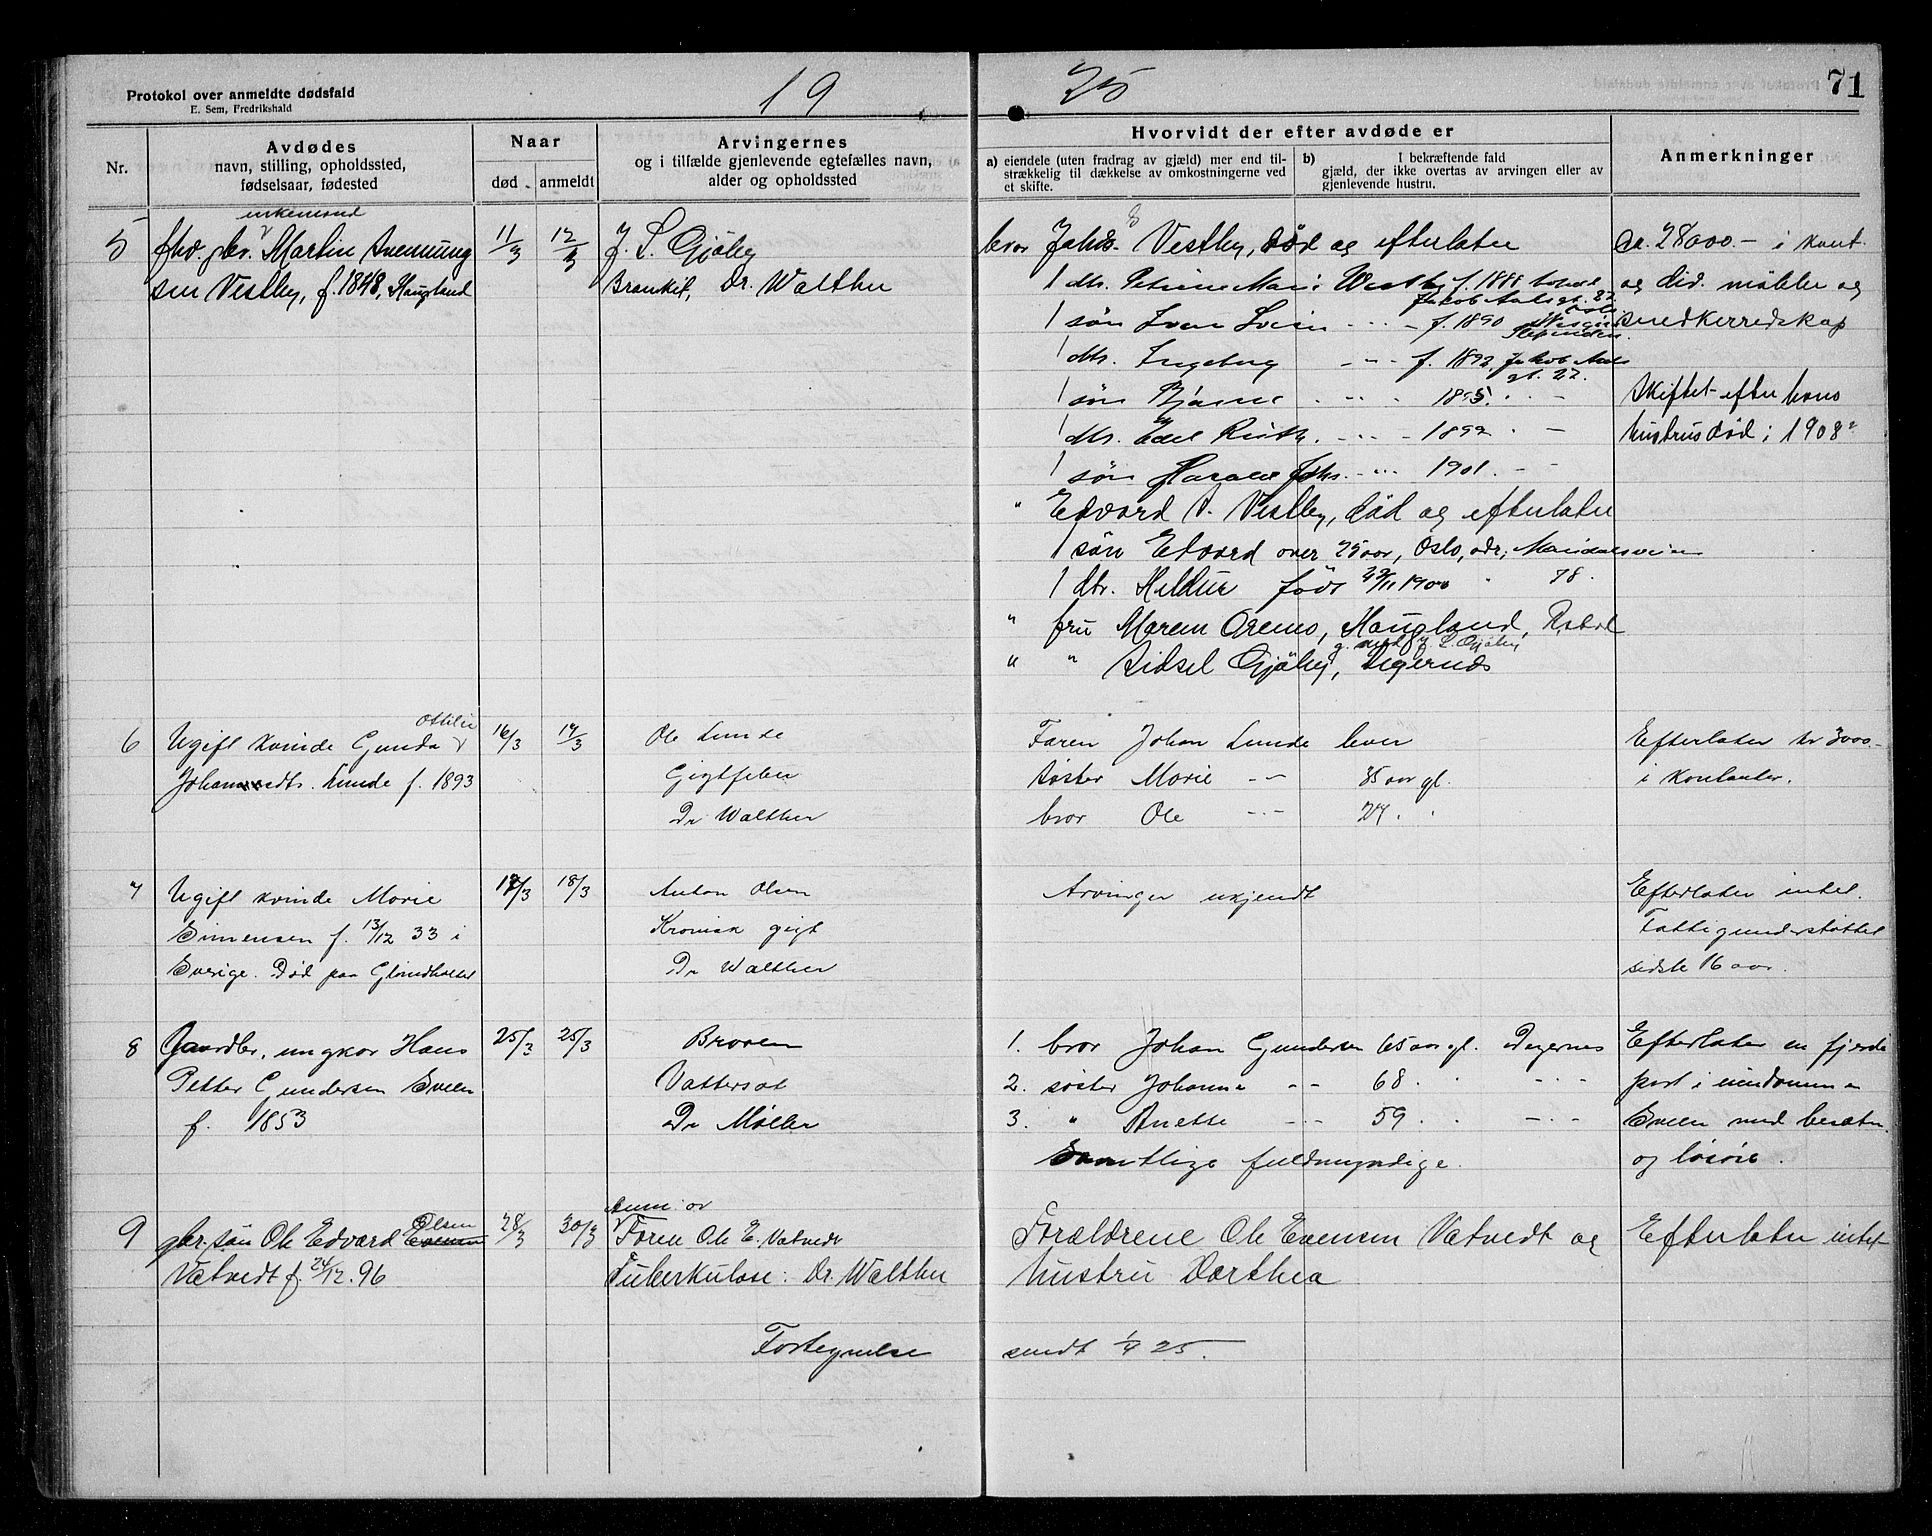 Protokol over anmeldte dødsfald
E. Sem, Fredrikshald
19
25
71
Nr.
Avdødes
navn, stilling, opholdssted,
fødselsaar, fødested
Naar
død
anmeldt
Arvingernes
og i tilfælde gjenlevende egtefælles navn,
alder og opholdssted
Hvorvidt der efter avdøde er
a) eiendele (uten fradrag av gjæld) mer end til-
strækkelig til dækkelse av omkostningerne ved
et skifte.
b) I bekræftende fald
gjæld, der ikke overtas av arvingen eller av
gjenlevende hustru.
Anmerkninger
5
enkemand
fhv. gbr. Martin Svennung
sen Vestby, f. 1848, Haugland
11/3
12/3
J. S. Gjöby
Bronkit, Dr. Walther
bror Johs. Vestby, död og efterlater
1 dtr. Petrine Marie Westby f. 1888
Jakob Aalsgt. 27.
1 sön Ivar Svein - f. 1890
1 dtr. Ingeborg - f. 1892, Jakob Aals
gt. 27.
1 sön Bjarne 1895.
1 dtr. Edel Ruth. 1899
1 sön Harald Johs. 1901.
" Edvard S. Vestby, död og efterlater
1 sön Edvard over 25 aar, Oslo, adr; Maridalsveien
1 dtr. Hildur född 29/11 1900 " 78.
" fru Maren Aremo, Haugland,
g. med J. S. Gjöby
" " Sidsel Gjöby, Degernes
ca. 28000.- i kont.
og div. möbler og
snedkerredskap
Skiftet efter hans
hustrus död i 1908
6
Ottilie
Ugift kvinde Gunda
Johansdtr. Lunde f. 1893
16/3
17/3
Ole Lunde
Gigtfeber
Dr Walther
Faren Johan Lunde lever
söster Marie -"- 35 aar gl.
bror Ole -"- 24. "
Efterlater kr 3000.-
i kontanter.
7
Ugift kvinde Marie
Simensen f. 13/12 33 i
Sverige. Död paa
17/3
18/3
Anton Olsen
Kronisk gigt
Dr Walther
Arvinger ukjendt
Efterlater intet.
Fattigunderstöttet
sidste 16 aar.
8
Gaardbr, ungkar Hans
Petter Gundersen Sveen
f. 1853
25/3
25/3
Broren
Vattersot
Dr Møller
1. bror Johan Gundersen 65 aar gl. Degernes
2. søster Johanne -"- 68. " -"-
3. " Anette -"- 59. -"-
Samtlige fuldmyndige.
Efterlater en fjerde
part i eiendommen
Sveen med besætn.
og løsøre.
9
Olsen
gbr. sön Ole Edvard Evensen
Vatvedt f. 24/12. 96
28/3
30/3
Anm. av
Faren Ole E. Vatvedt
Tuberkulose: Dr. Walther
Forældrene Ole Evensen Vatvedt og
hustru Dorthea
Efterlater intet
Fortegnelse
sendt 1/4 25.